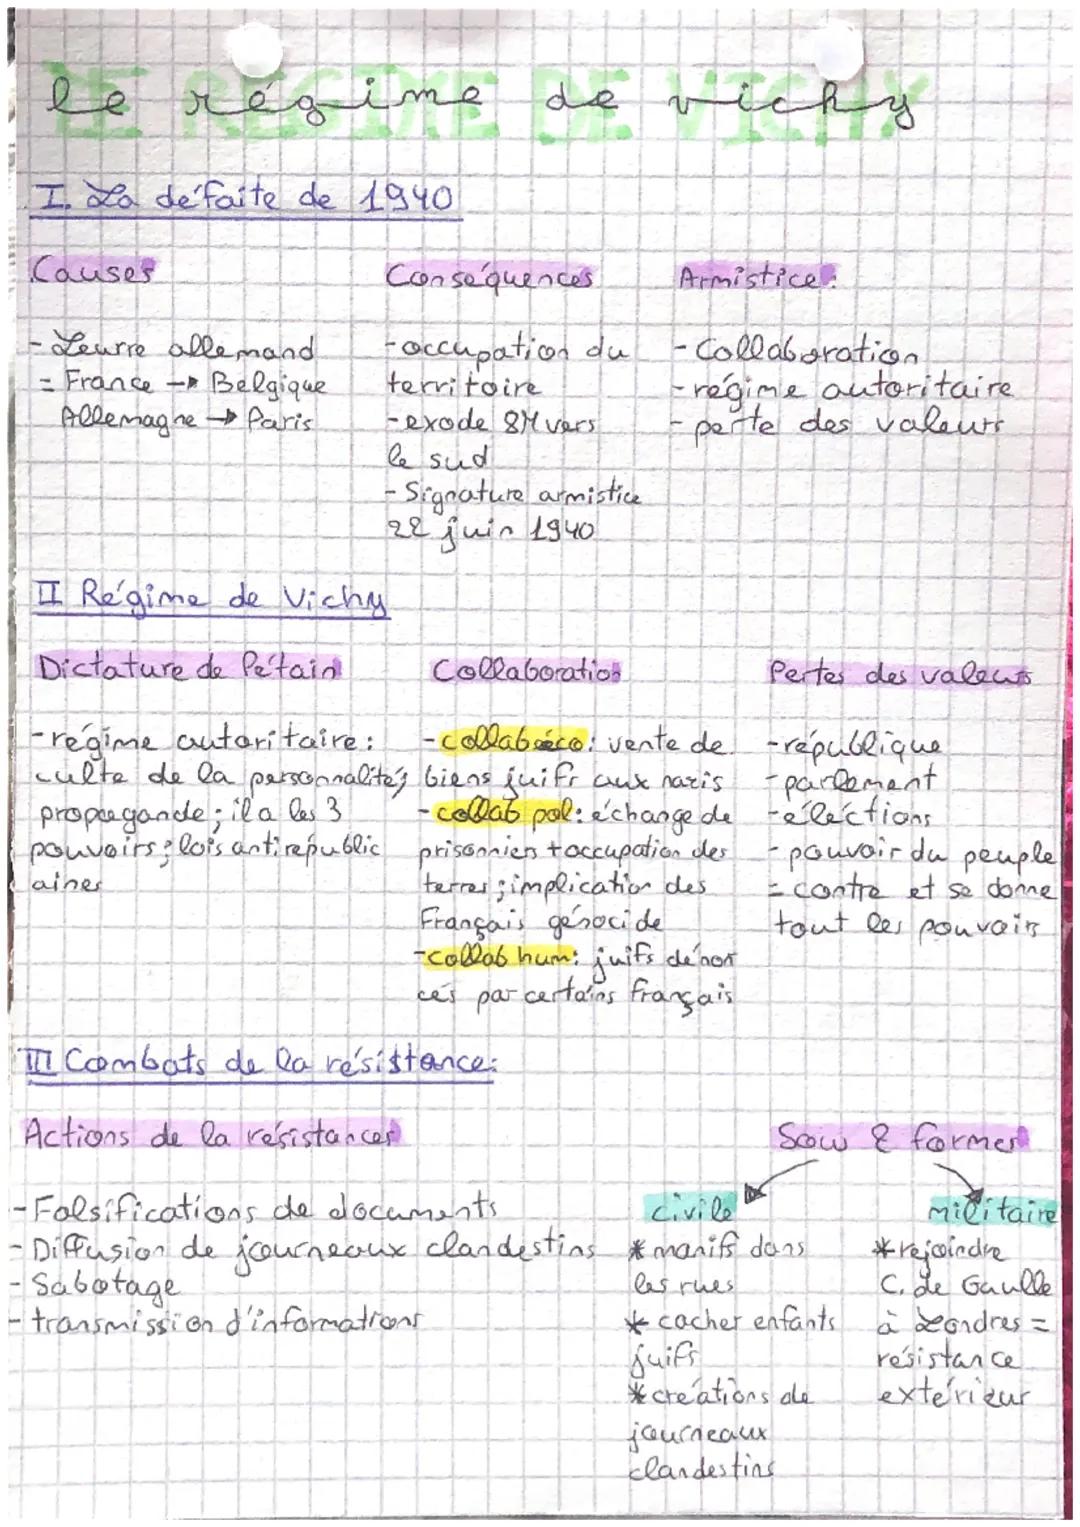 le régime de vichy
I. La défaite de 1940
Causes
- Leurre allemand
= France → Belgique
Allemagne → Paris
Conséquences
- occupation du
territoire
- exode 8M vers
le sud
- Signature armistice
22 juin 1940
Armistice:
- Collaboration
- régime autoritaire
- perte des valeurs
II Régime de Vichy
Dictature de Pétain
- régime autoritaire:
culte de la personnalité;
propagande; il a les 3
pouvoirs; lois antirépublic
aines
Collaboration
- collab éco: vente de
biens juifs aux nazis
- collab pol: échange de
prisonniers + occupation des
terres; implication des
Français génocide
- collab hum: juifs dénon
cés par certains français
Pertes des valeurs
- république
- parlement
- élections
- pouvoir du peuple
= contre et se donne
tout les pouvoirs
III Combats de la résistance:
Actions de la résistances
- Falsifications de documents
- Diffusion de journeaux clandestins
- Sabotage
- transmission d'informations
Sous 2 formes
civile
* manifs dans
les rues
* cacher enfants
juifs
* créations de
journeaux
clandestins
militaire
* rejoindre
C. de Gaulle
à Londres =
résistance
extérieur